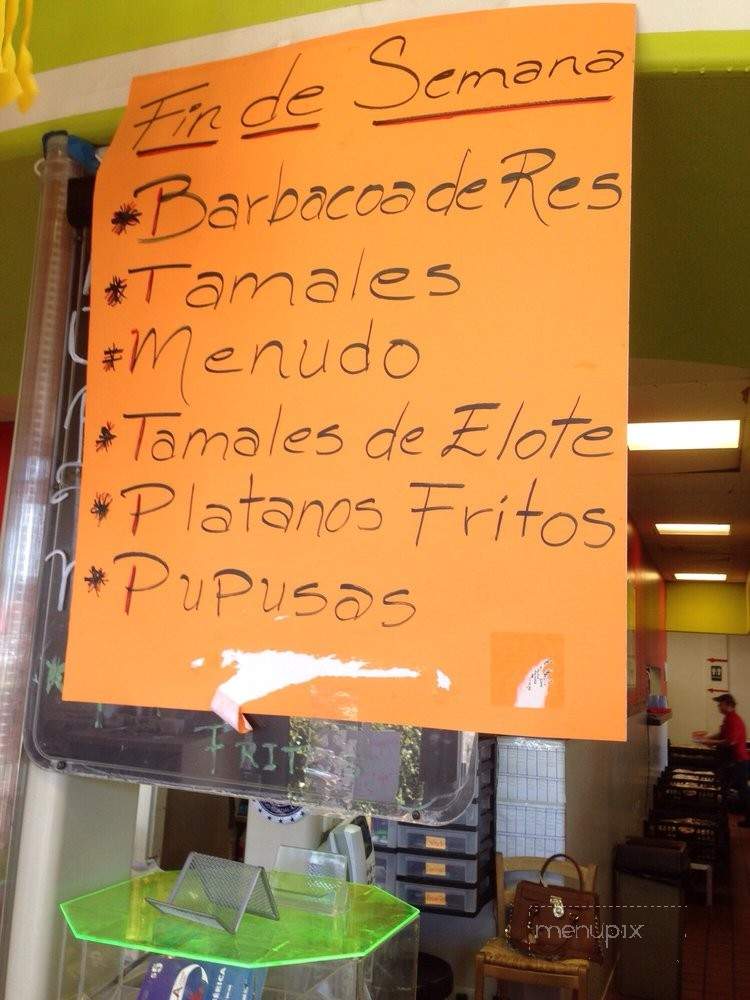 Fin de Semana
* Barbacoa de Res
* Tamales
* Menudo
* Tamales de Elote
* Platanos Fritos
* Pupusas
FRIT
$5
menupix